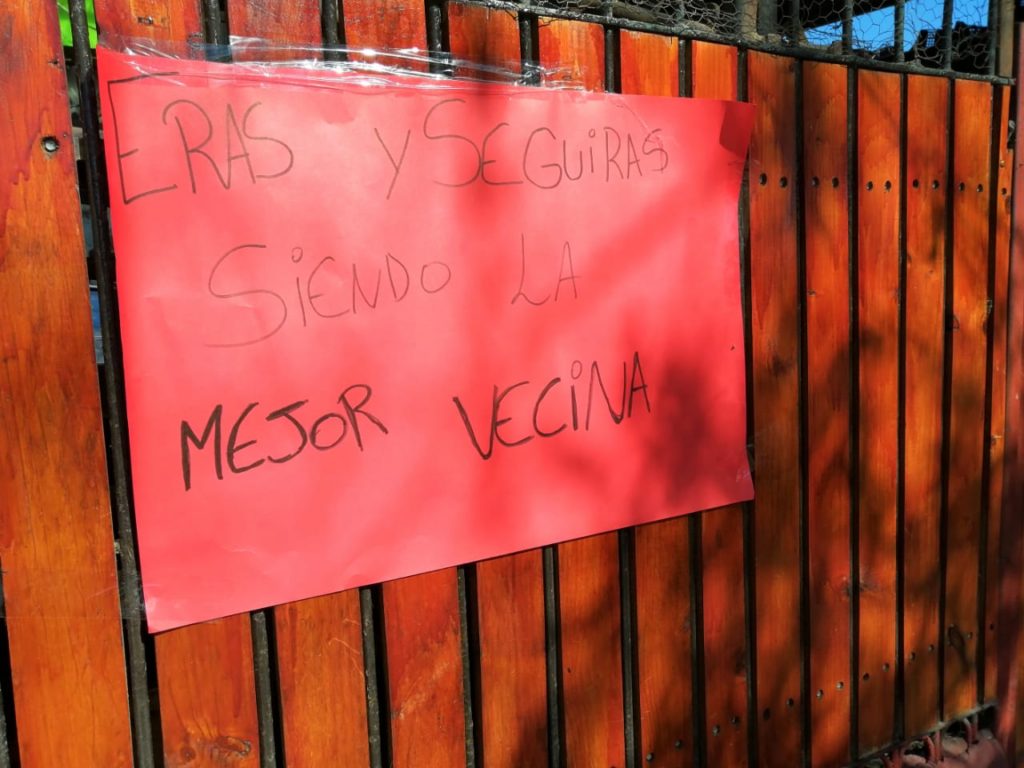 ERAS Y SEGUiRAS
SiENDO LA
MEJOR VECiNA